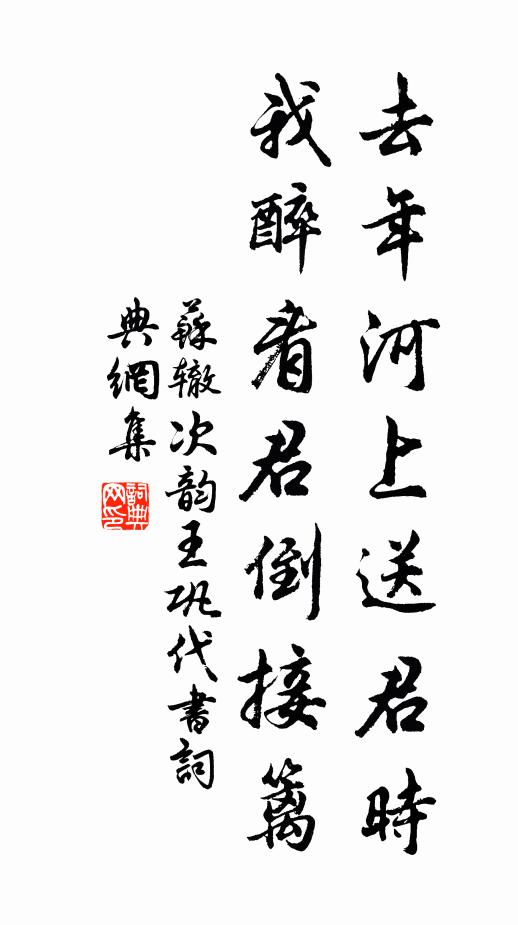 去年河上送君時
我醉看君倒接篱
蘇辙次韵王巩代書詞
典網集
詞典
网印